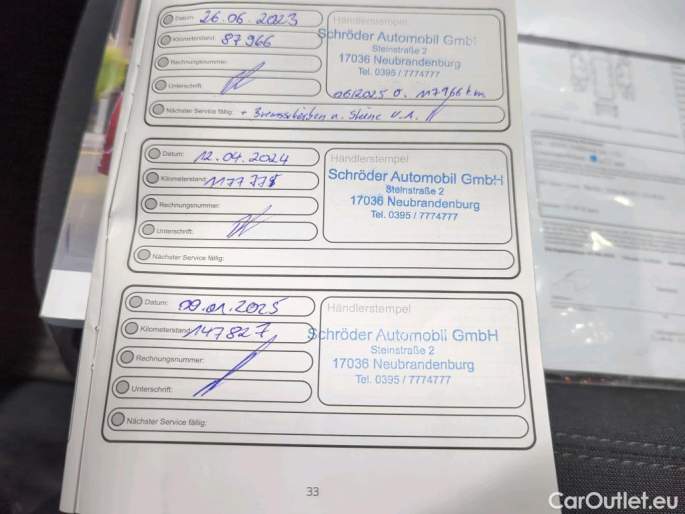 Datum: 26.06.2023
Kilometerstand: 87966
Rechnungsnummer:
Unterschrift:
Händlerstempel
Schröder Automobil GmbH
Steinstraße 2
17036 Neubrandenburg
Tel. 0395 / 7774777
06/2025 o. 117966 km
Nächster Service fällig: + Bremsscheiben u. Steine v.A.
Datum: 12.04.2024
Kilometerstand:
Rechnungsnummer:
Unterschrift:
Händlerstempel
Schröder Automobil GmbH
Steinstraße 2
17036 Neubrandenburg
Tel. 0395 / 7774777
Nächster Service fällig:
Datum: 09.01.2025
Kilometerstand: 147827
Rechnungsnummer:
Unterschrift:
Händlerstempel
Schröder Automobil GmbH
Steinstraße 2
17036 Neubrandenburg
Tel. 0395 / 7774777
Nächster Service fällig:
33
CarOutlet.eu